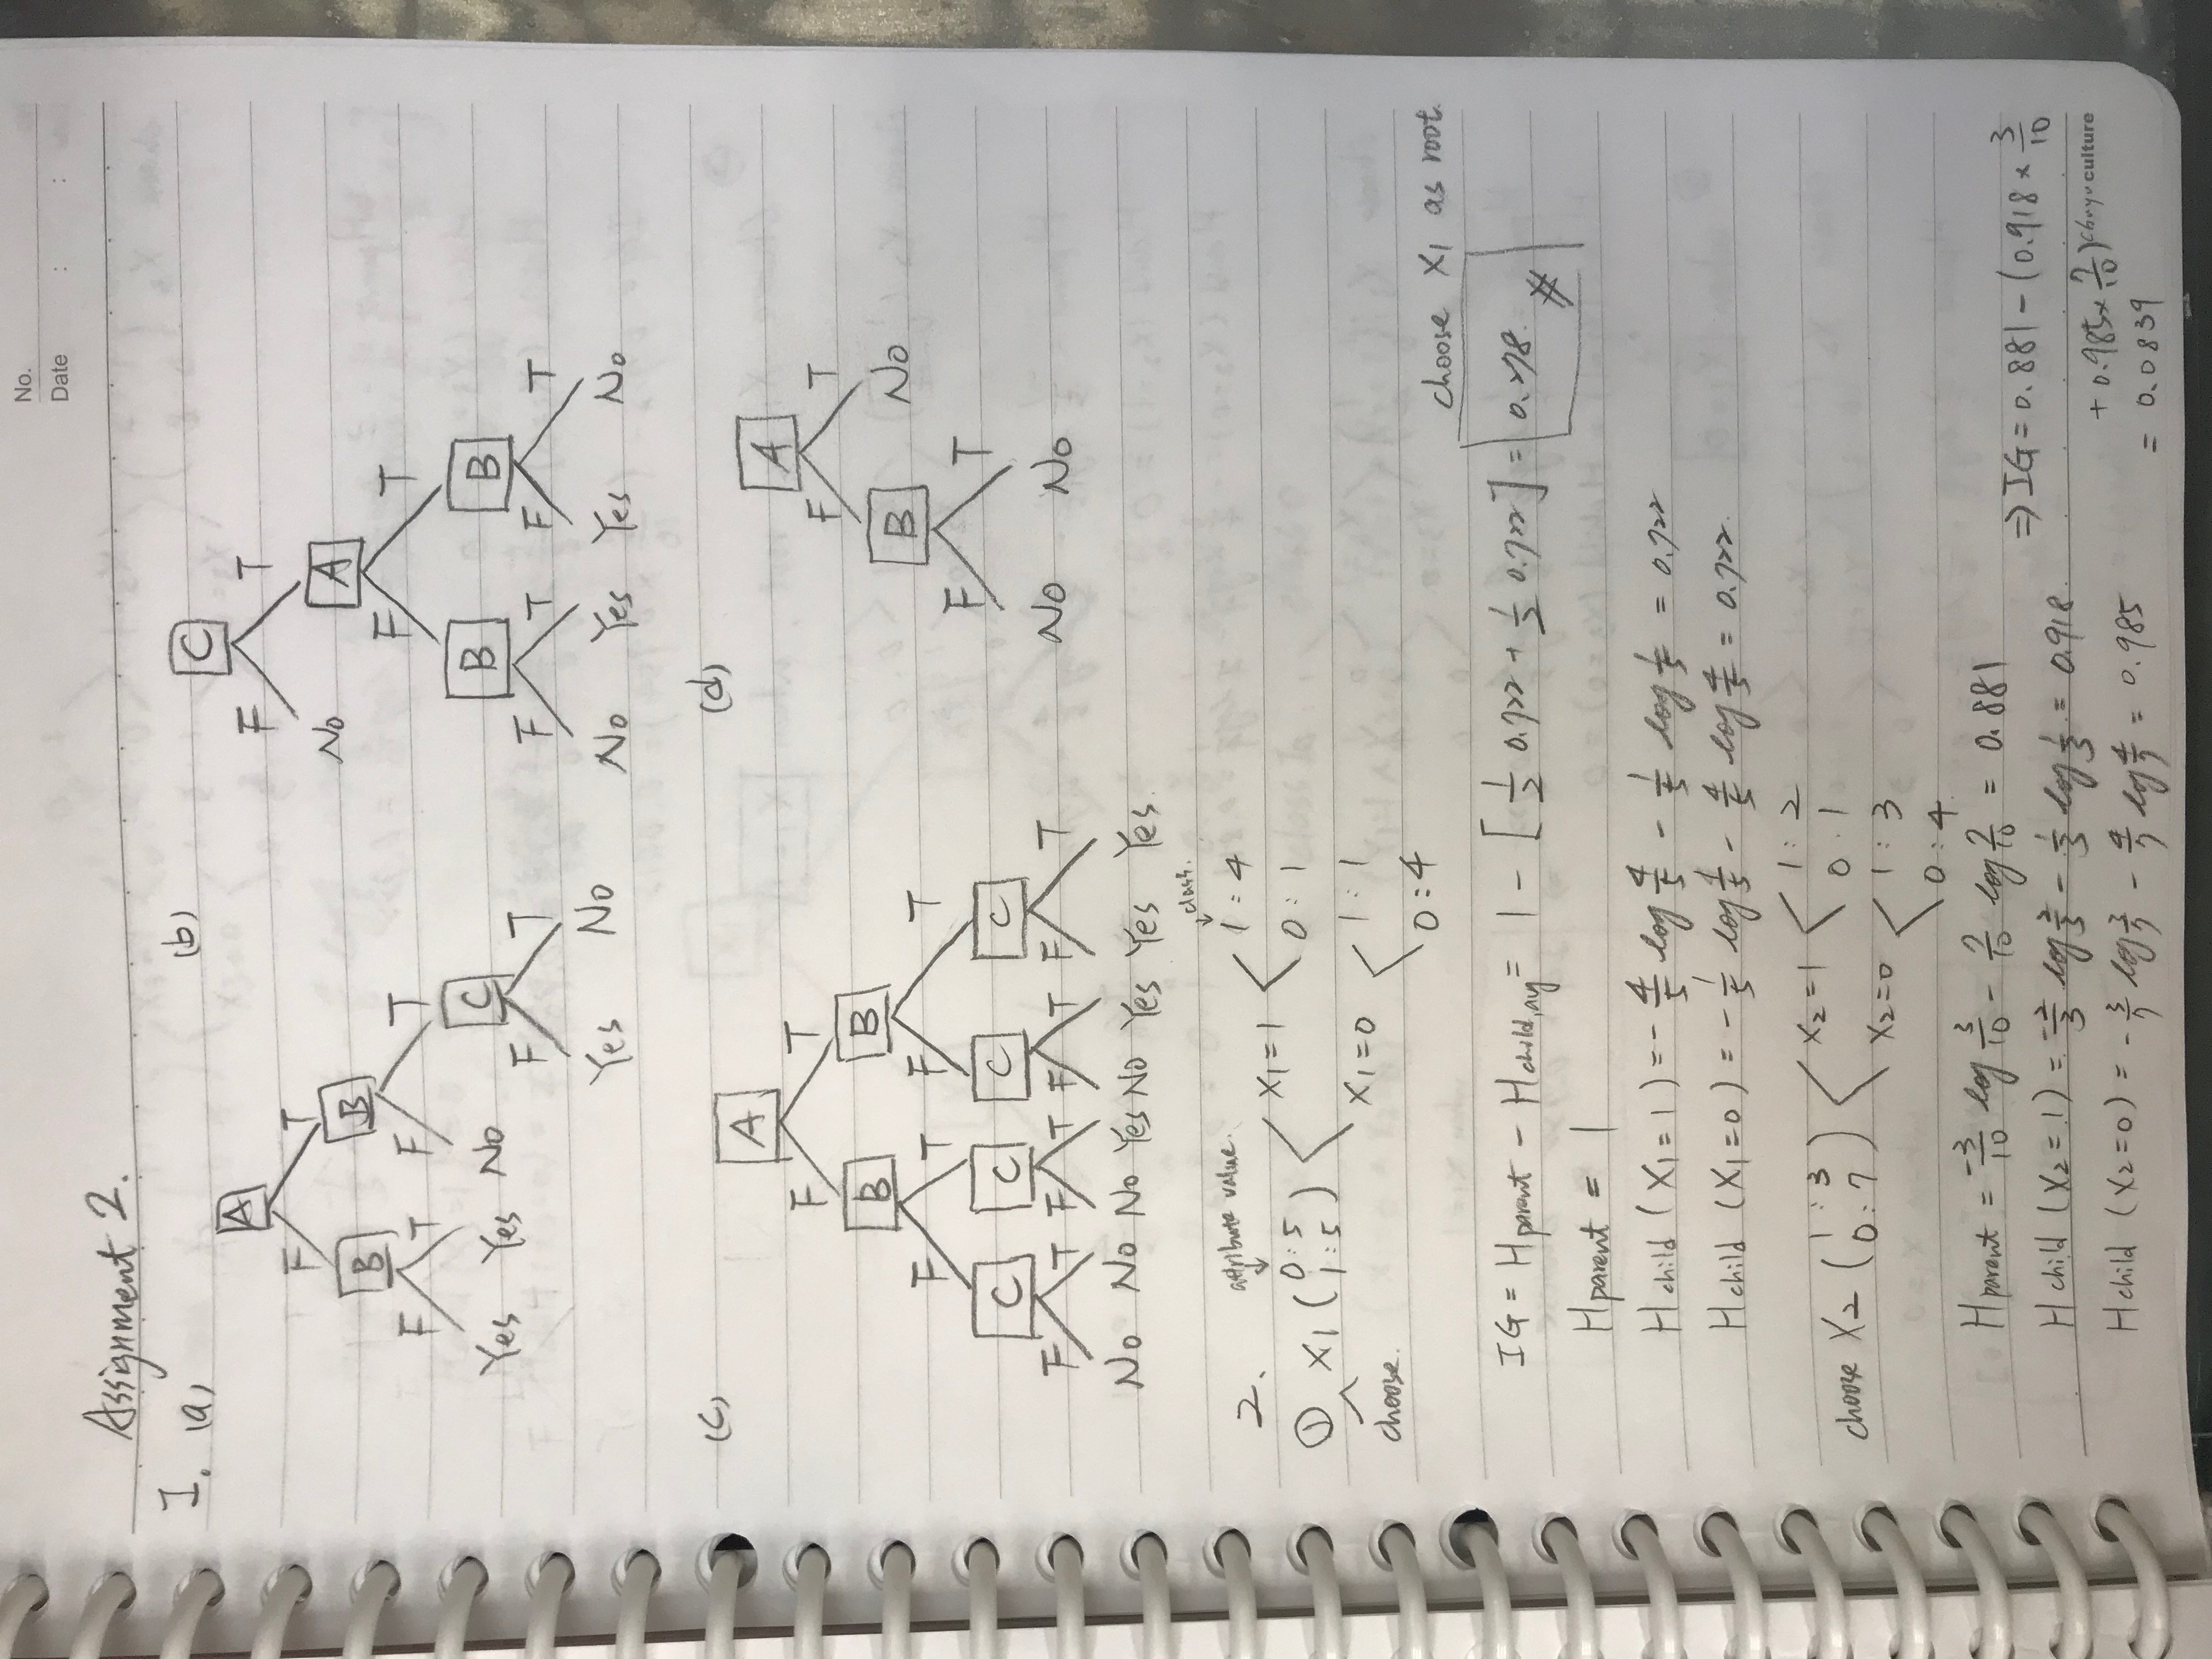 No.
Date : :
Assignment 2.
I. (a)
A
F T
B B
F T F T
Yes Yes No C
F T
Yes No
(b)
C
F T
No A
F T
B B
F T F T
No Yes Yes No
(c)
A
F T
B B
F T F T
C C C C
F T F T F T F T
No No No Yes No Yes Yes Yes.
(d)
A
F T
B No
F T
No No
2. attribute value. class.
① X1 ( 0:5 1:5 ) X1=1 1:4 0:1
X1=0 1:1 0:4
choose.
choose X1 as root.
IG = Hparent - Hchild,avg = 1 - [ 1/2 0.722 + 1/2 0.722 ] = 0.278. #
Hparent = 1
Hchild (X1=1) = - 4/5 log 4/5 - 1/5 log 1/5 = 0.722
Hchild (X1=0) = - 1/5 log 1/5 - 4/5 log 4/5 = 0.722.
choose X2 ( 1:3 0:7 ) X2=1 1:2 0:1
X2=0 1:3 0:4
Hparent = -3/10 log 3/10 - 7/10 log 7/10 = 0.881
Hchild (X2=1) = -2/3 log 2/3 - 1/3 log 1/3 = 0.918
Hchild (X2=0) = - 3/7 log 3/7 - 4/7 log 4/7 = 0.985
⇒ IG = 0.881 - (0.918 × 3/10
+ 0.985 × 7/10)
= 0.0839
culture